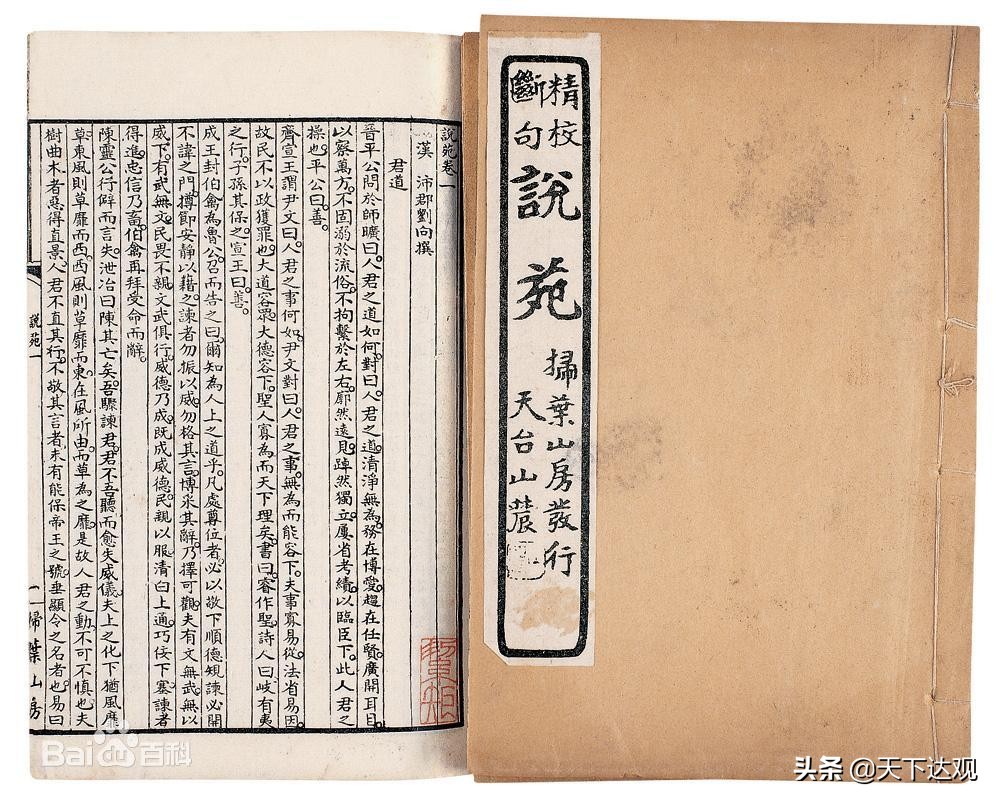 精校
斷句
說苑
掃葉山房發行
天台山農
說苑卷一
漢 沛郡劉向撰
君道
晉平公問於師曠曰。人君之道如何。對曰。人君之道。清淨無為。務在博愛。趨在任賢。廣開耳目。
以察萬方。不固溺於流俗。不拘繫於左右。廓然遠見。踔然獨立。屢省考績。以臨臣下。此人君之
操也。平公曰。善。
齊宣王謂尹文曰。人君之事何如。尹文對曰。人君之事。無為而能容下。夫事寡易從。法省易因。
故民不以政獲罪也。大道容眾。大德容下。聖人寡為而天下理矣。書曰。睿作聖。詩人曰。岐有夷
之行。子孫其保之。宣王曰。善。
成王封伯禽為魯公。召而告之曰。爾知為人上之道乎。凡處尊位者。必以敬下順德規諫。必開
不諱之門。撙節安靜以藉之。諫者勿振以威。勿格其言。博采其辭。乃擇可觀。夫有文無武。無以
威下。有武無文。民畏不親。文武俱行。威德乃成。既成威德。民親以服。清白上通。巧佞下塞。諫者
得進。忠信乃畜。伯禽再拜受命而辭。
陳靈公行僻而言失。泄冶曰。陳其亡矣。吾驟諫君。君不吾聽。而愈失威儀。夫上之化下。猶風靡
草。東風則草靡而西。西風則草靡而東。在風所由。而草為之靡。是故人君之動。不可不慎也。夫
樹曲木者。惡得直景。人君不直其行。不敬其言者。未有能保帝王之號。垂顯令之名者也。易曰
說苑一
一 掃葉山房
Bai百科
头条 @天下达观